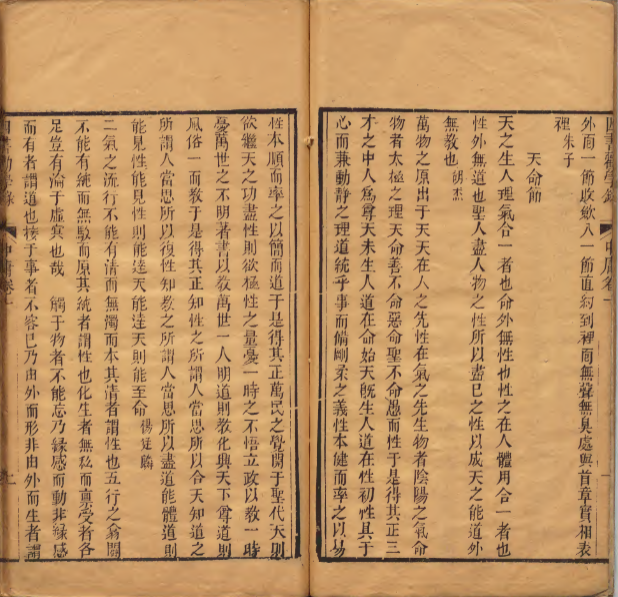 外而一節收歛入一節直約到裡面無聲無臭處與首章實相表
裡朱子
天命節
天之生人理氣合一者也命外無性也性之在人體用合一者也
性外無道也聖人盡人物之性所以盡已之性以成天之能道外
無教也
萬物之原出于天天在人之先性在氣之先生物者陰陽之氣命
物者太極之理天命善不命惡命聖不命愚而性于是得其正三
才之中人爲尊天未生人道在命始天旣生人道在性初性具于
心而兼動靜之理道統乎事而備剛柔之義性本健而率之以易
性本順而率之以簡而道于是得其正萬民之覺開于聖代天則
欲繼天之功盡性則欲極性之量憂一時之不悟立政以教一時
憂萬世之不明著書以教萬世一人明道則教化興天下尊道則
風俗一而教于是得其正知性之所謂人當思所以合天知道之
所謂人當思所以復性知教之所謂人當思所以盡道能體道則
能見性能見性則能達天能達天則能至命 楊廷麟
二氣之流行不能有清而無濁而本其清者謂性也五行之翕闢
不能有純而無駁而原其純者謂性也化生者無私而稟受者各
足豈有淪于虛寂也哉 觸于物者不能忘乃緣感而動非緣感
而有者謂道也接于事者不容已乃由外而形非由外而生者謂